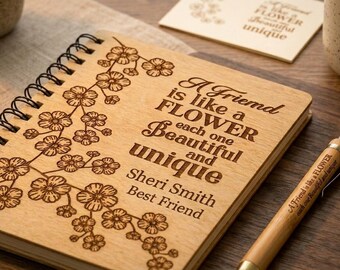 A Friend
is like a
FLOWER
each one
Beautiful
and
unique
Sheri Smith
Best Friend
A Friend
is like a
FLOWER
each one
Beautiful
and
unique
A Friend is like a FLOWER